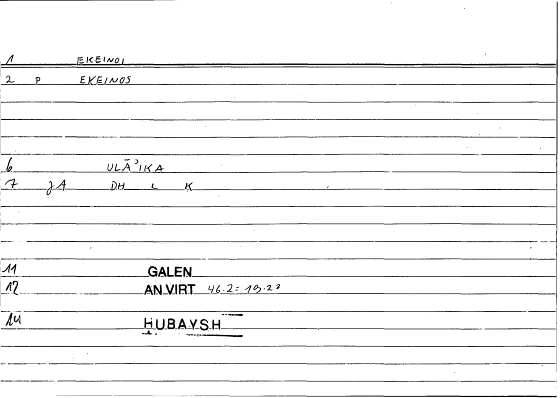 1 EKEINOI
2 P EKEINOS
6 ULĀʾIKA
7 JA DH L K
11 GALEN
12 AN.VIRT 46.2: 19.22
14 HUBAYSH